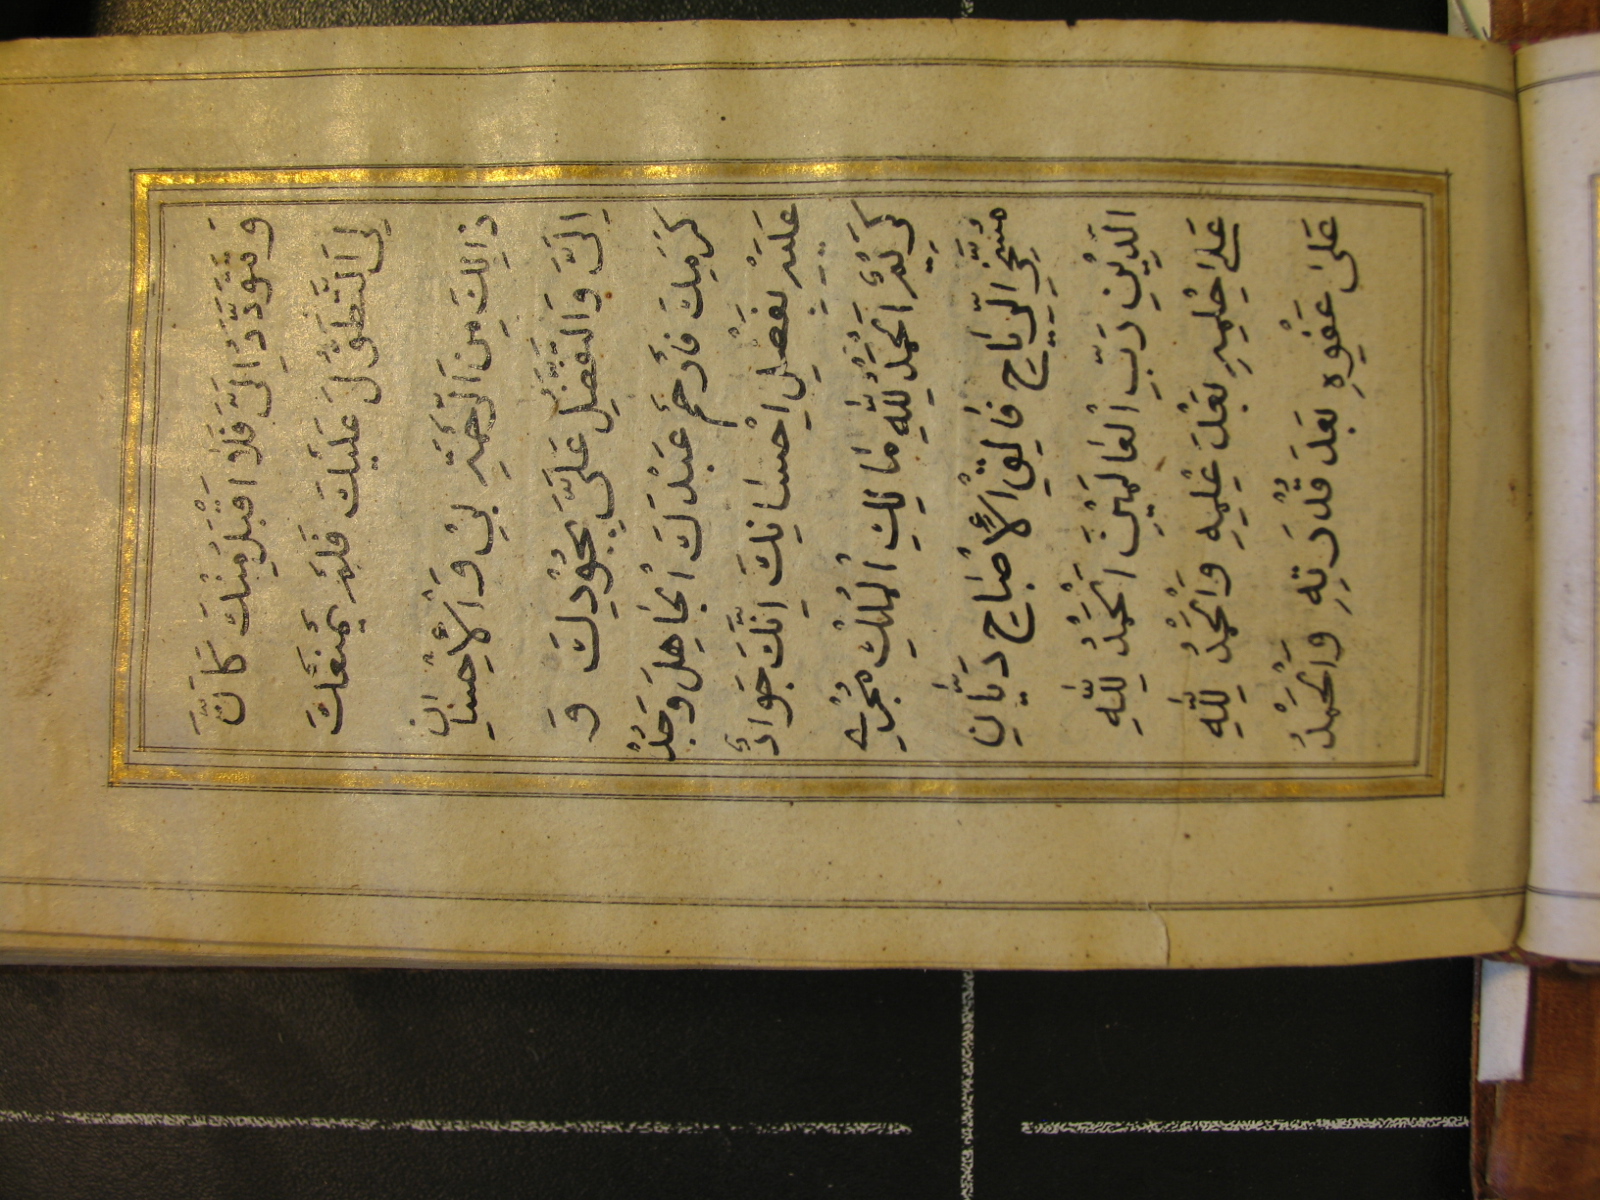 وَتَتَوَدَّدُ اِلَىَّ فَلَا اَقْبَلُ مِنْكَ كَاَنَّ
لِىَ التَّطَوُّلَ عَلَيْكَ فَلَمْ يَمْنَعْكَ
ذٰلِكَ مِنَ الرَّحْمَةِ بِىْ وَالْاِحْسَانِ
اِلَىَّ وَالتَّفَضُّلِ عَلَىَّ بِجُوْدِكَ وَ
كَرَمِكَ فَارْحَمْ عَبْدَكَ الْجَاهِلَ وَجُدْ
عَلَيْهِ بِفَضْلِ اِحْسَانِكَ اِنَّكَ جَوَادٌ
كَرِيْمٌ اَلْحَمْدُ لِلّٰهِ مَالِكِ الْمُلْكِ مُجْرِى
مُسَخِّرِ الرِّيَاحِ فَالِقِ الْاَصْبَاحِ دَيَّانِ
الدِّيْنِ رَبِّ الْعَالَمِيْنَ اَلْحَمْدُ لِلّٰهِ
عَلٰى حِلْمِهِ بَعْدَ عِلْمِهِ وَالْحَمْدُ لِلّٰهِ
عَلٰى عَفْوِهِ بَعْدَ قُدْرَتِهِ وَالْحَمْدُ